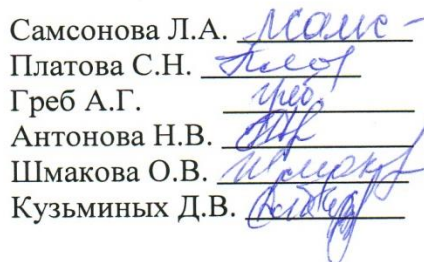 Самсонова Л.А.
Платова С.Н.
Греб А.Г. Греб
Антонова Н.В.
Шмакова О.В.
Кузьминых Д.В.